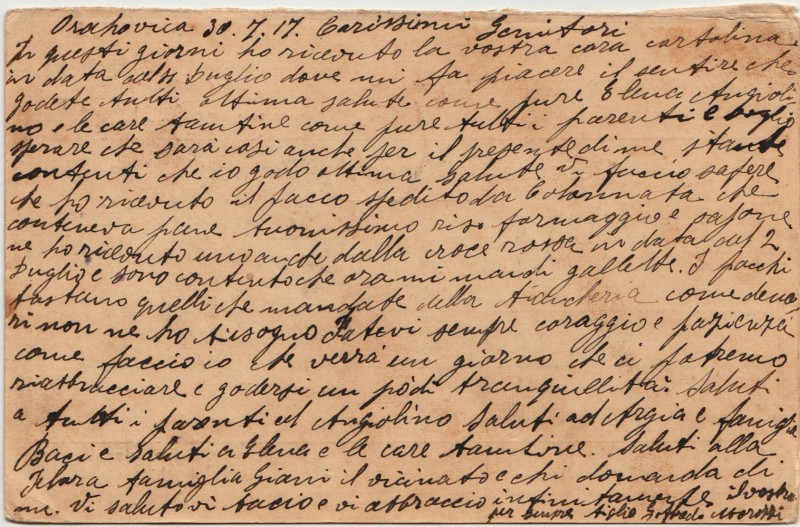 Orahovica 30.7.17. Carissimi Genitori
In questi giorni ho riceduto la vostra cara cartolina
in data del Luglio dove mi fa piacere il sentire che
godete tutti ottima salute come pure Elena Angioli
no e le care bambine come pure tutti i parenti e voglio
sperare che sara cosi anche per il presente di me state
contenti che io godo ottima salute Vi faccio sapere
che ho riceduto il pacco spedito da Colonnata che
conteneva pane buonissimo riso formaggio e sapone
ne ho riceduto uno anche dalla croce rossa in data del 2
Luglio e sono contento che ora mi mandi gallette. I pacchi
bastano quelli che mandate della biancheria come dena
ri non ne ho bisogno Fatevi sempre coraggio e pazienza
come faccio io che verrá un giorno che ci potremo
riabbracciare e godersi un pó di tranquellitá. Saluti
a tutti i parenti ed Angiolino Saluti ad Argia e famiglia
Baci e saluti a Elena e le care bambine. Saluti alla
famiglia Giani il vicinato e chi domanda di
me. Vi saluto vi bacio e vi abbraccio intimamente il vostro
per sempre figlio